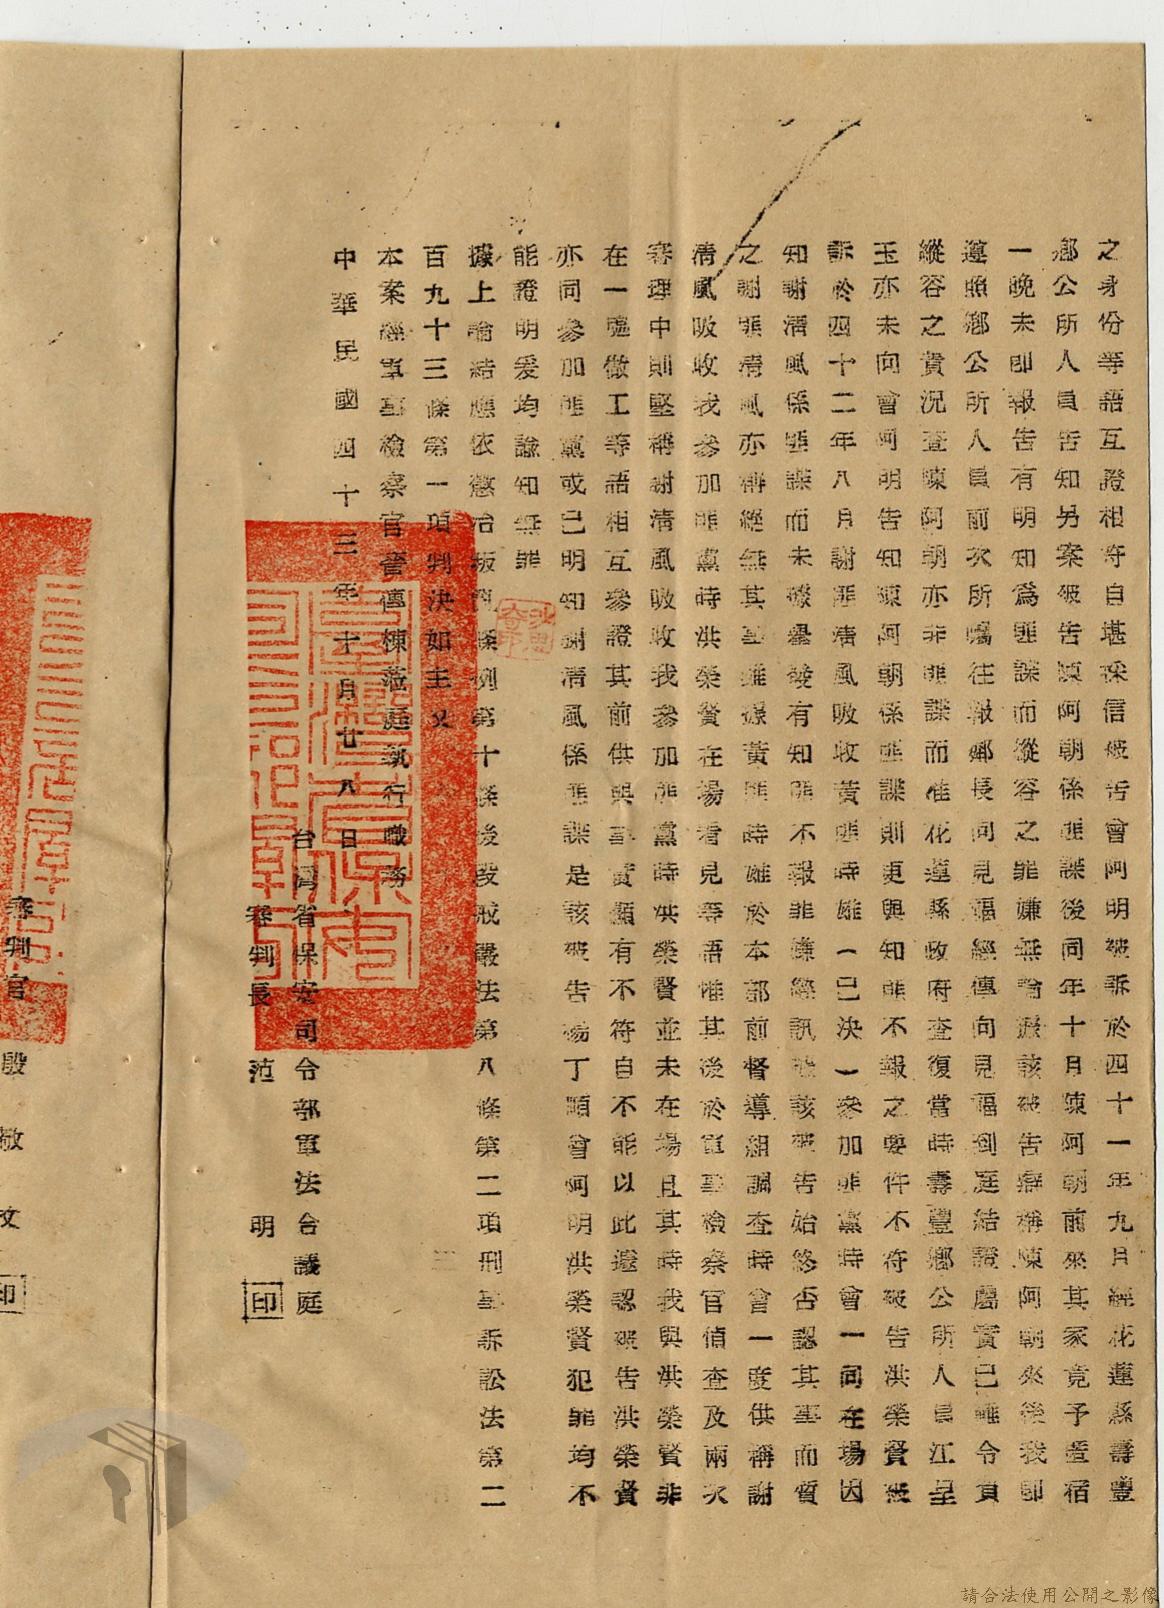 之身份等語互證相符自堪採信被告曾阿明被訴於四十一年九月經花蓮縣壽豐
鄉公所人員告知另案被告陳阿朝係匪諜後同年十月陳阿朝前來其家竟予造宿
一晚未即報告有明知為匪諜而縱容之罪嫌無論該被告辯稱陳阿朝來後我即
遵照鄉公所人員前次所囑往報鄉長向見福經傳向見福到庭結證屬實已難令負
縱容之責況查陳阿朝亦非匪諜而准花蓮縣政府查復當時壽豐鄉公所人員江呈
玉亦未向會阿明告知陳阿朝係匪諜則更與知匪不報之要件不符被告洪榮賢被
訴於四十二年八月謝匪清風吸收黃匪時雄（已決）參加匪黨時曾一同在場因
知謝清風係匪諜而未檢舉發有知匪不報罪嫌經訊該被告始終否認其事而質
之謝匪清風亦稱經無其事雖據黃匪時雄於本部前督導組調查時會一度供稱謝
清風吸收我參加匪黨時洪榮賢在場看見等語惟其後於軍事檢察官偵查及兩次
審理中則堅稱謝清風吸收我參加匪黨時洪榮賢並未在場且其時我與洪榮賢非
在一處做工等語相互參證其前供與事實顯有不符自不能以此遽認被告洪榮賢
亦同參加匪黨或已明知謝清風係匪諜是該被告楊丁顯會阿明洪榮賢犯罪均不
能證明爰均諭知無罪
據上論結應依懲治叛亂條例第十條後段戒嚴法第八條第二項刑事訴訟法第二
百九十三條第一項判決如主文
本案經軍事檢察官曹傳棟蒞庭執行職務
中華民國四十三年十月廿八日
台灣省保安司令部軍法合議庭
審判長 范 明 印
審判官 殷 敬 文 印
請合法使用公開之影像